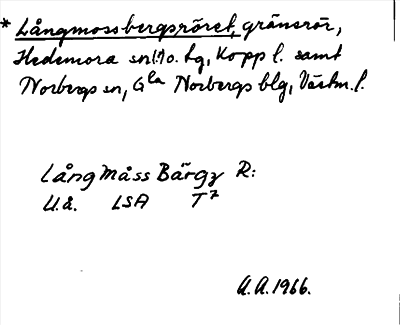 * Långmossbergsröret, gränsrör,
Hedemora sn o. tg, Kopp l. samt
Norbergs sn, Gla Norbergs blg, Västm. l.
Lång Måss Bärgz R:
U.å. LSA T7
A.A. 1966.